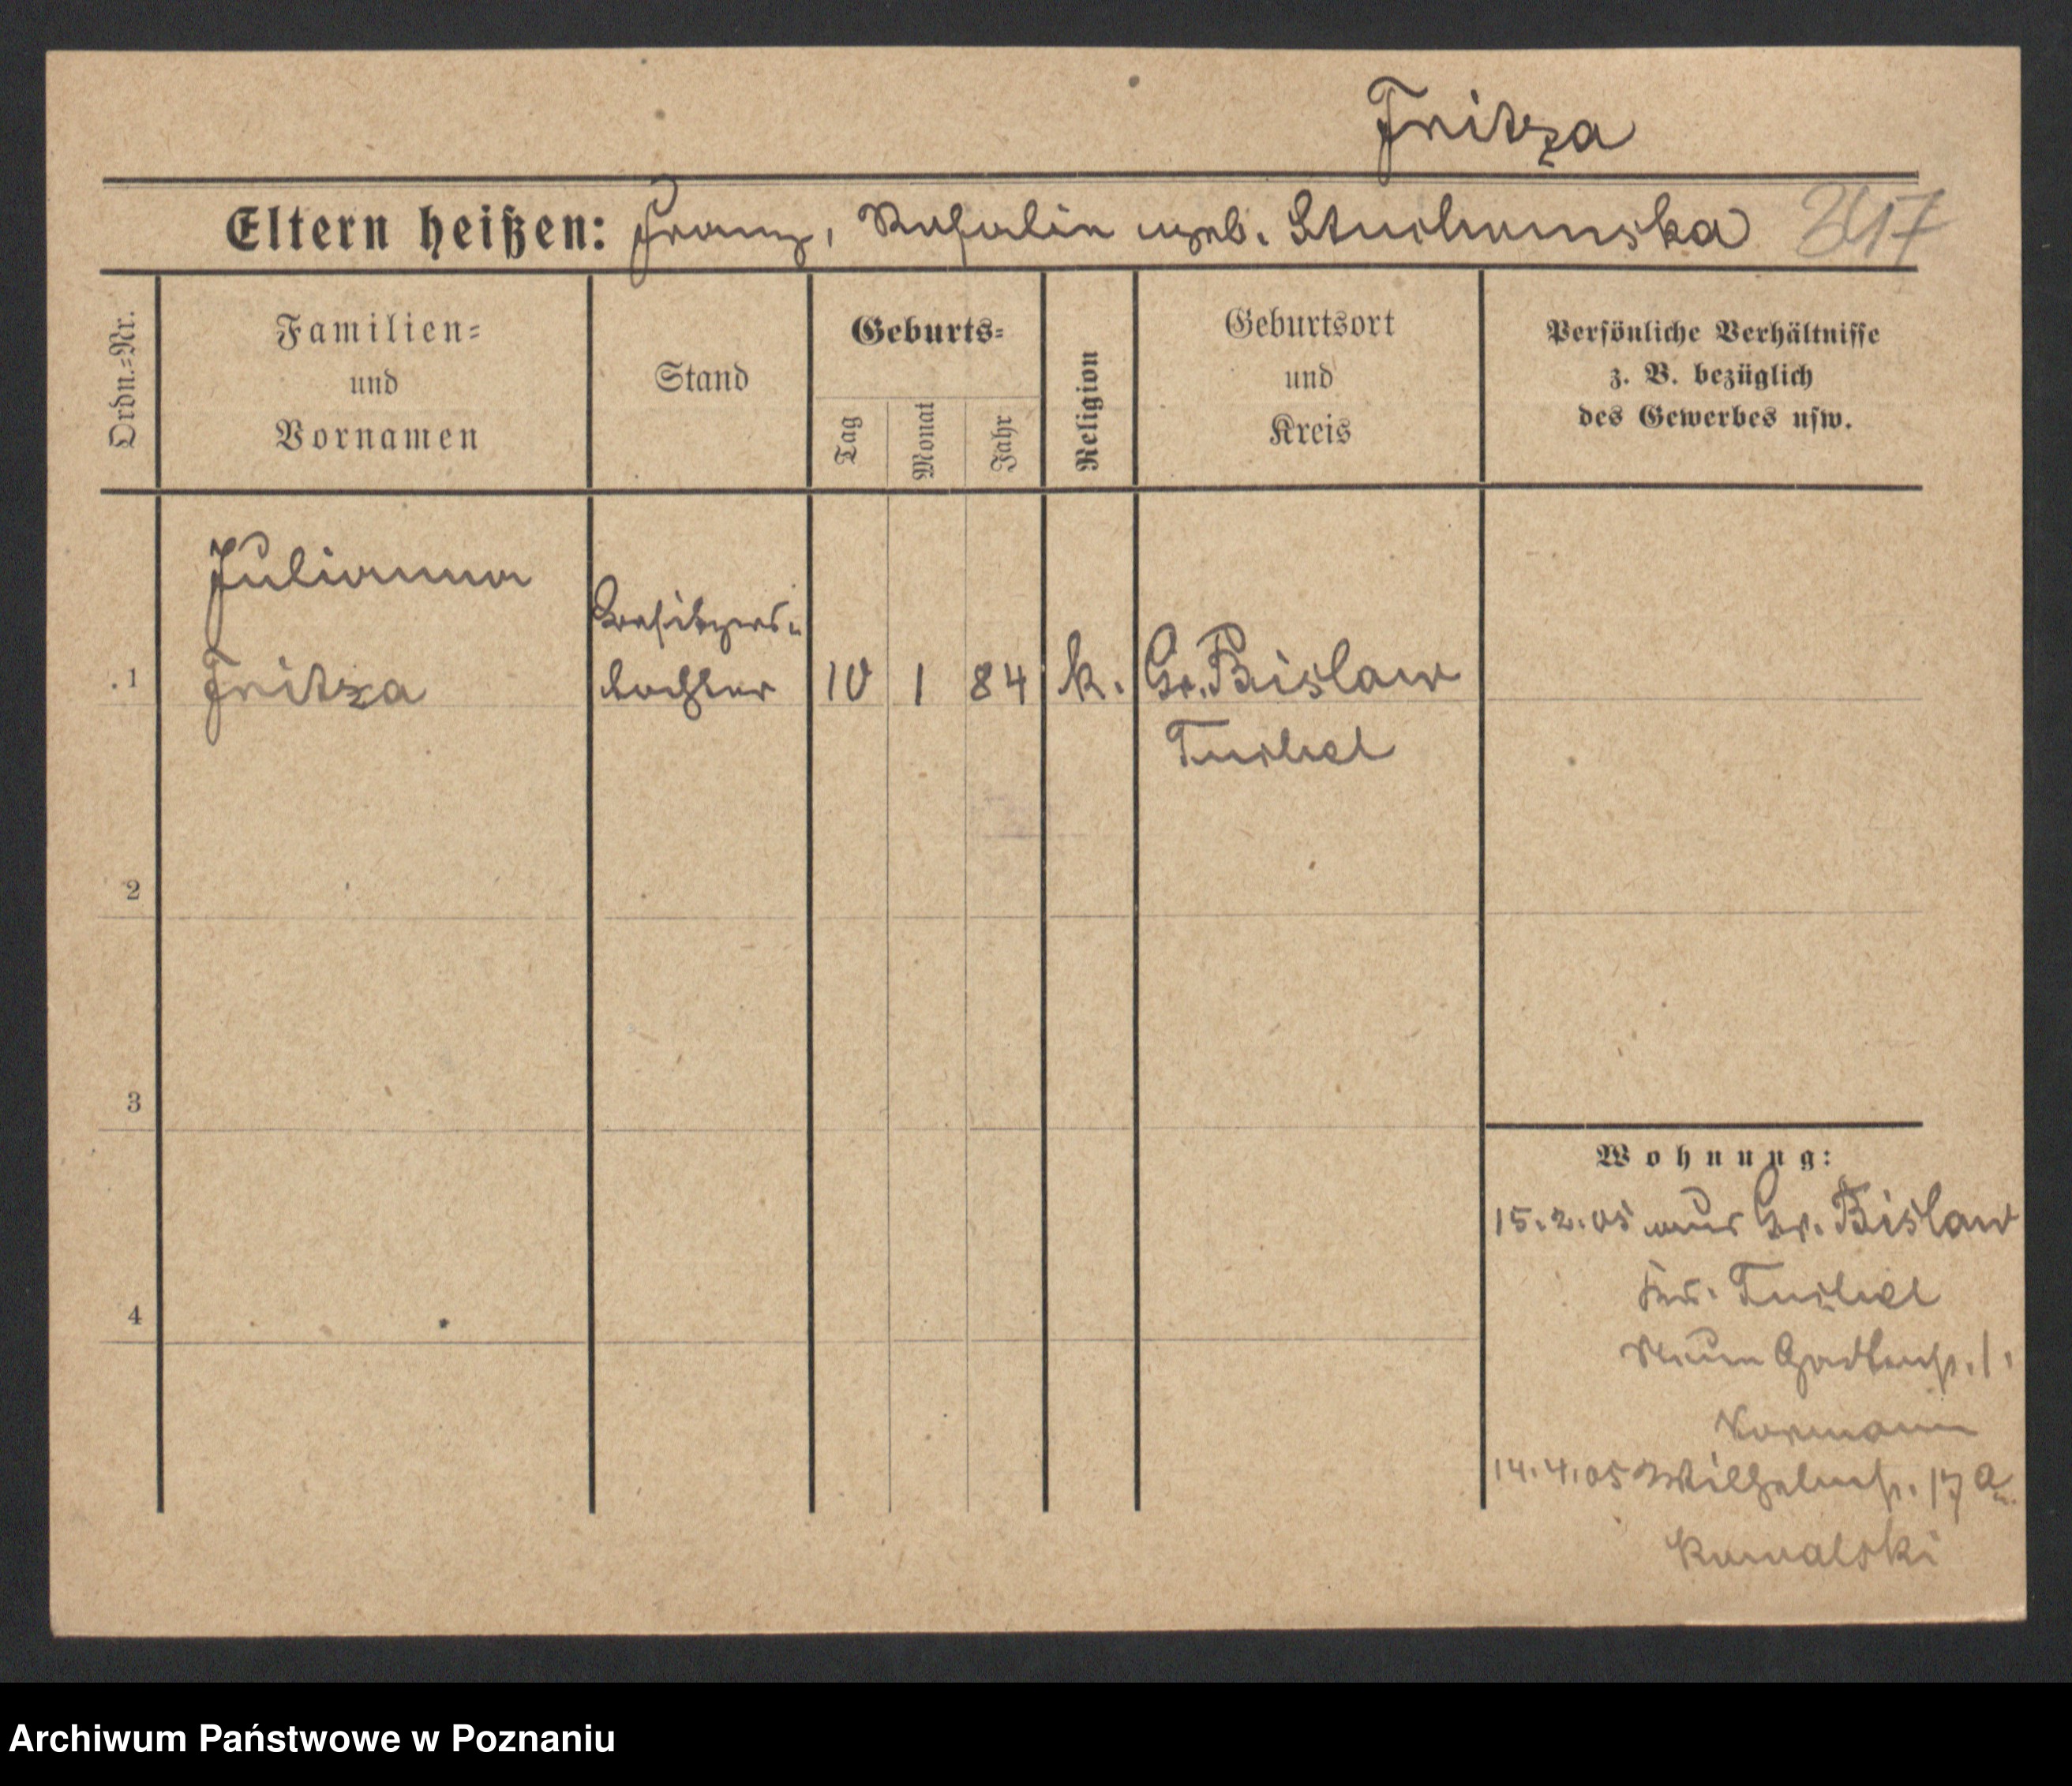 Fritza
Eltern heißen: Franz, Rosalie geb. Stuchomska 347
Ordn.=Nr.
Familien=
und
Vornamen
Stand
Geburts=
Tag
Monat
Jahr
Religion
Geburtsort
und
Kreis
Persönliche Verhältnisse
z. B. bezüglich
des Gewerbes usw.
Julianna
Besitzers-
1 Fritza tochter 10 1 84 k. Gr. Bislaw
Tuchel
2
3
4
Wohnung:
15.2.05 aus Gr. Bislaw
Kr. Tuchel
Neue Gartenstr. 1.
Normann
14.4.05 Wilhelmstr. 17
Kowalski
Archiwum Państwowe w Poznaniu